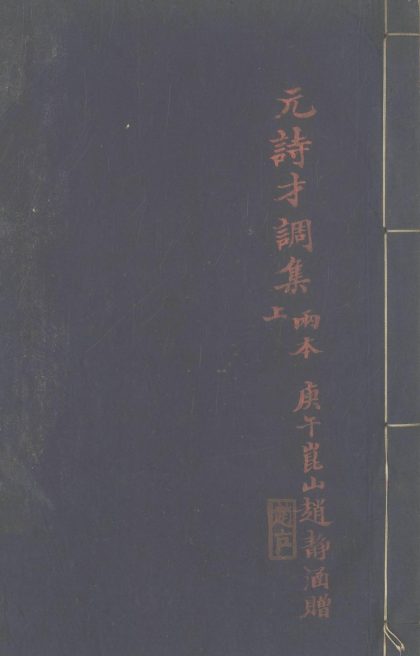 元詩才調集
上
兩本
庚午崑山趙靜涵贈